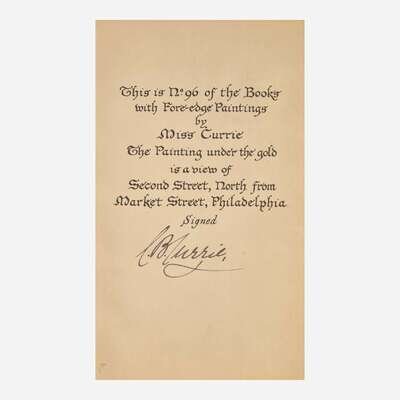 This is Nº 96 of the Books
with Fore-edge Paintings
by
Miss Currie
The Painting under the gold
is a view of
Second Street, North from
Market Street, Philadelphia
Signed
C.B. Currie,